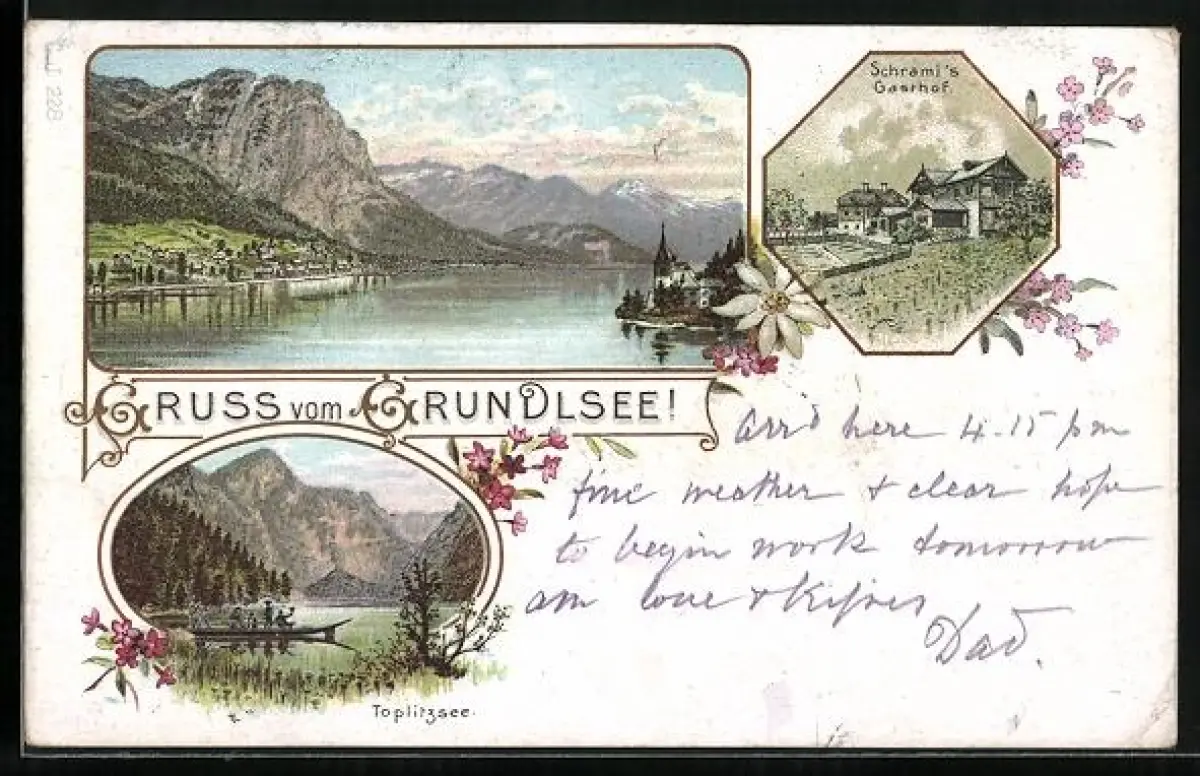 228
Schraml's
Gasthof.
GRUSS vom GRUNDLSEE!
Arrd here 4.15 pm
fine weather & clear hope
to begin work tomorrow
am love & Kisses
Dad.
Toplitzsee.